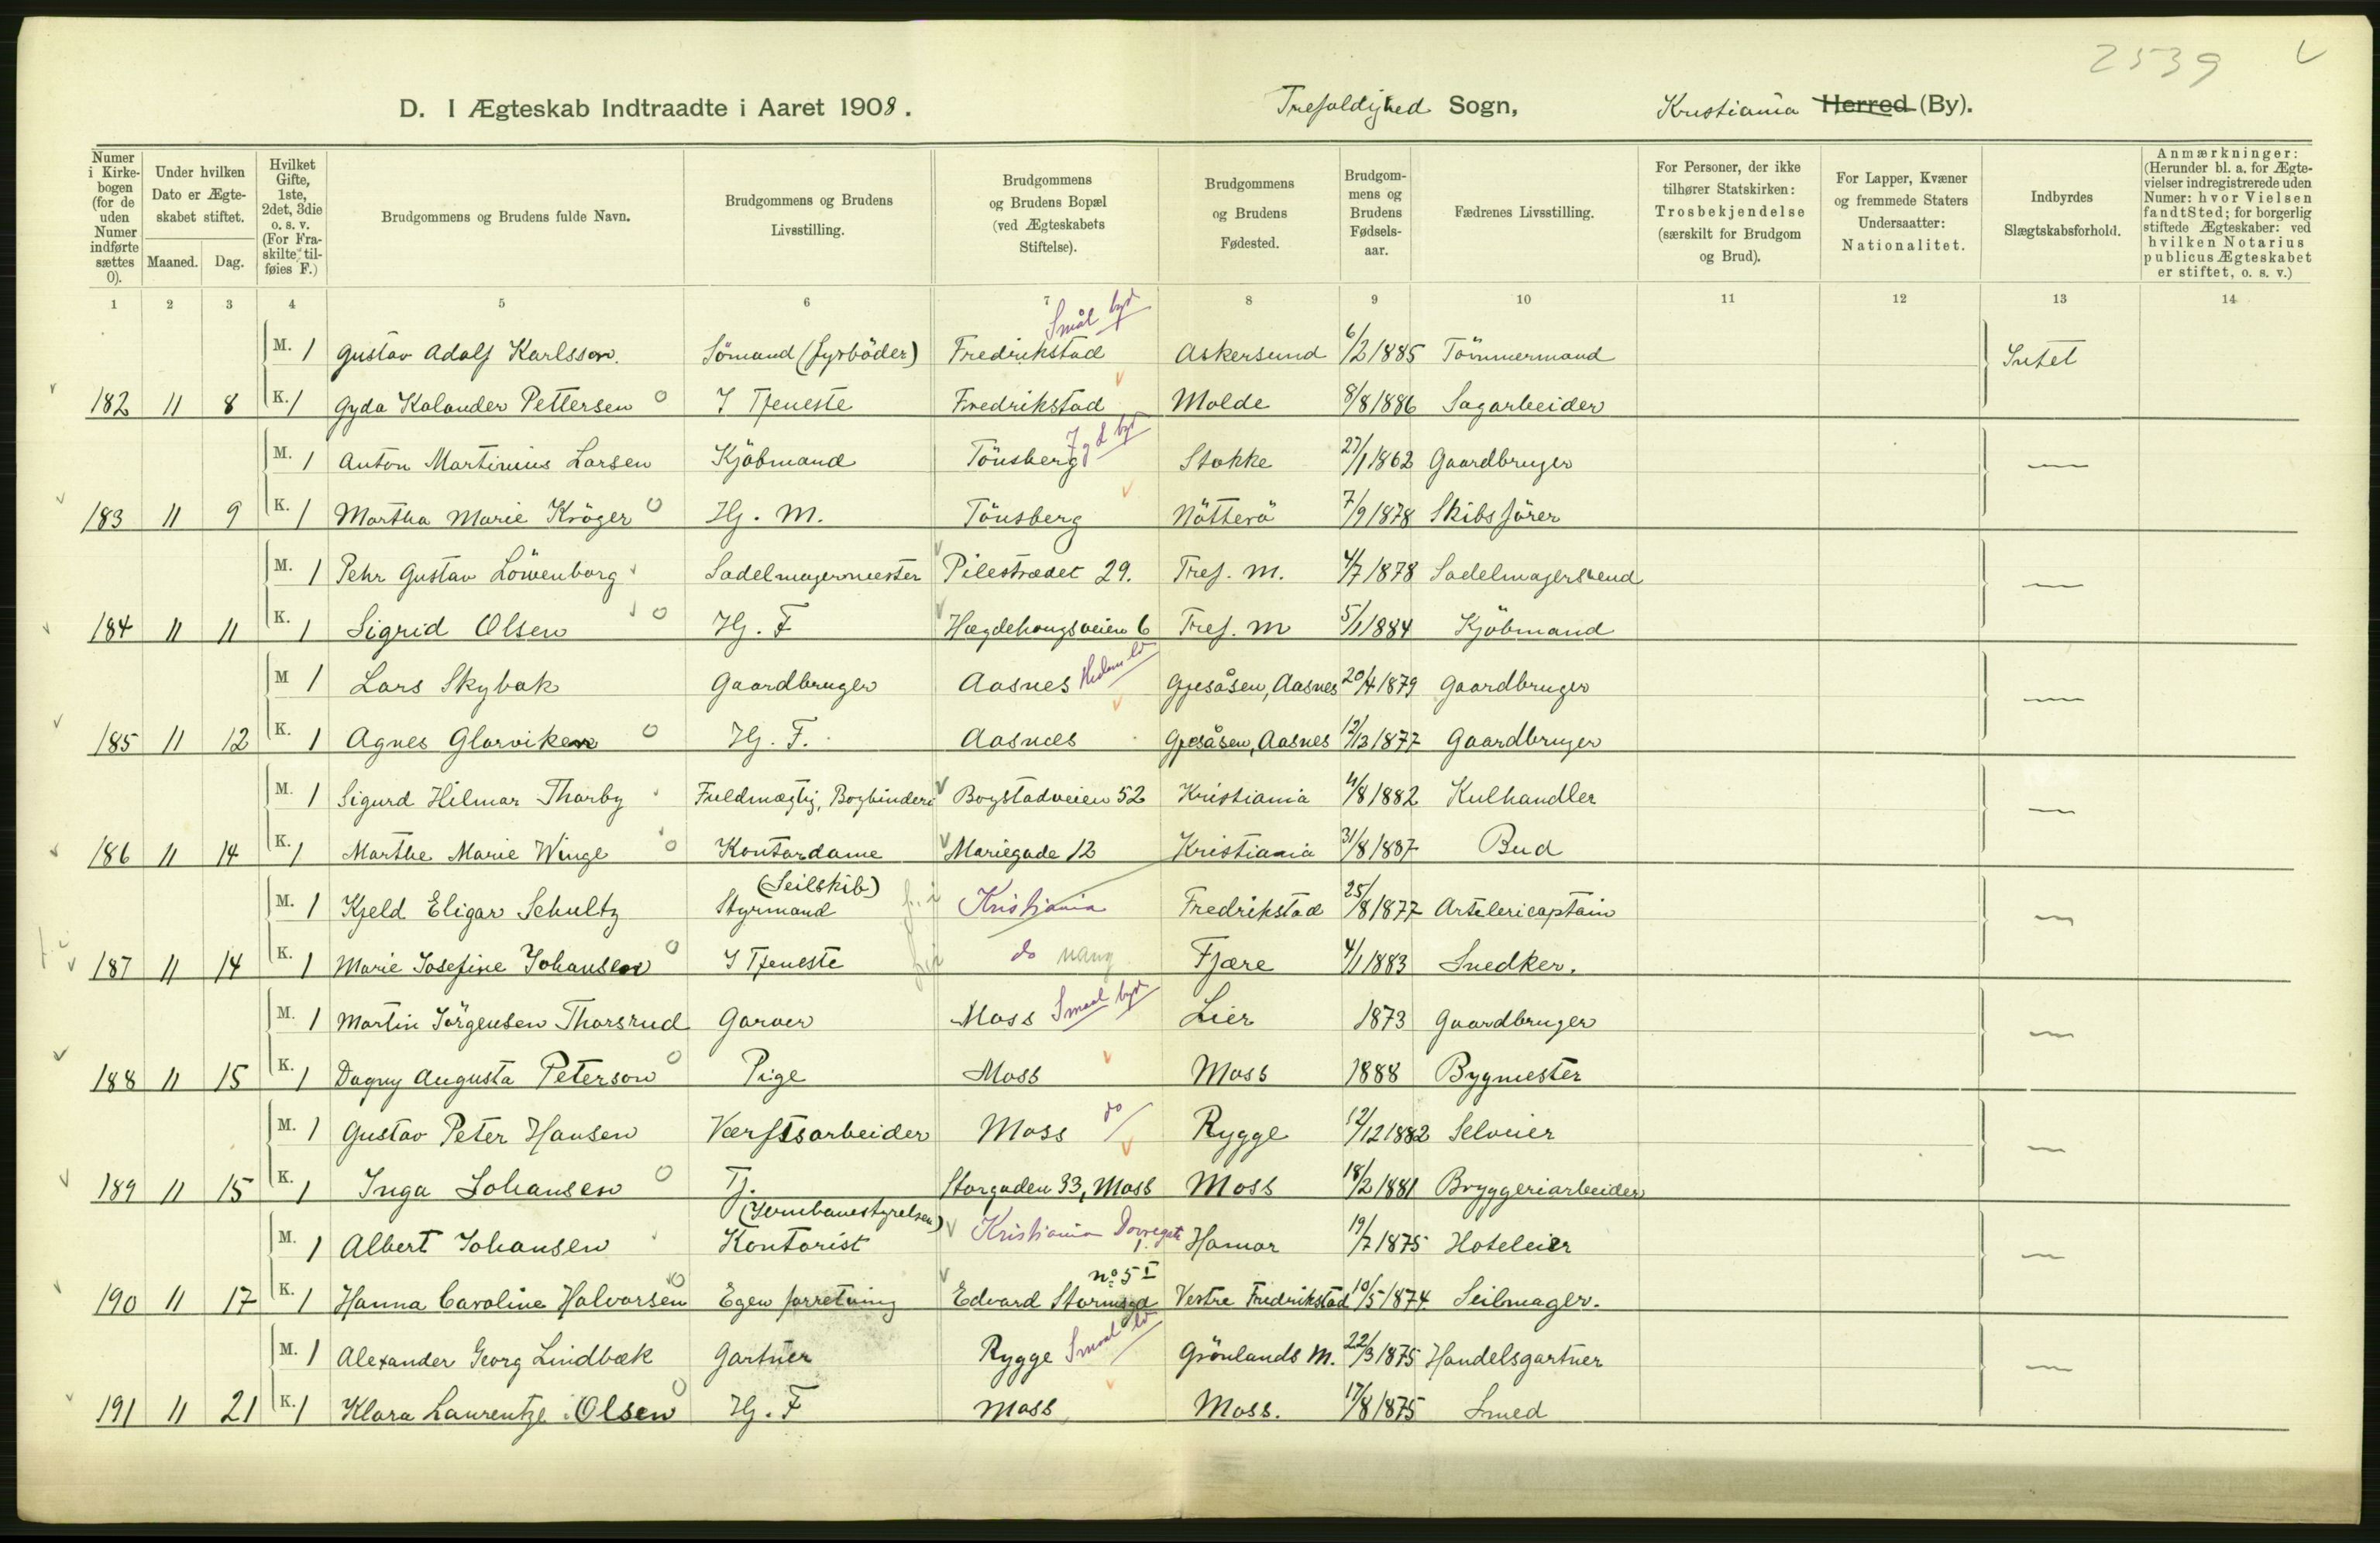 2539
D. I Ægteskab Indtraadte i Aaret 1908. Trefoldighed Sogn, Kristiania Herred (By).
Numer i Kirkebogen (for de uden Numer indførte sættes 0).
Under hvilken Dato er Ægteskabet stiftet.
Maaned. Dag.
Hvilket Gifte, 1ste, 2det, 3die o. s. v. (For Fraskilte tilføies F.)
Brudgommens og Brudens fulde Navn.
Brudgommens og Brudens Livsstilling.
Brudgommens og Brudens Bopæl (ved Ægteskabets Stiftelse).
Brudgommens og Brudens Fødested.
Brudgommens og Brudens Fødselsaar.
Fædrenes Livsstilling.
For Personer, der ikke tilhører Statskirken: Trosbekjendelse (særskilt for Brudgom og Brud).
For Lapper, Kvæner og fremmede Staters Undersaatter: Nationalitet.
Indbyrdes Slægtskabsforhold.
Anmærkninger: (Herunder bl. a. for Ægtevielser indregistrerede uden Numer: hvor Vielsen fandt Sted; for borgerlig stiftede Ægteskaber: ved hvilken Notarius publicus Ægteskabet er stiftet, o. s. v.)
1 2 3 4 5 6 7 8 9 10 11 12 13 14
Smål byd
M. 1 Gustav Adolf Karlsson. Sömand (Fyrböder) Fredrikstad Askersund 6/2 1885 Tömmermand Intet
182 11 8 K. 1 Gyda Kalander Pettersen o I Tjeneste Fredrikstad Molde 8/8 1886 Sagarbeider
M. 1 Anton Martinius Larsen Kjöbmand Tönsberg Stokke 27/1 1862 Gaardbruger —
183 11 9 K. 1 Martha Marie Kröger o Hj. M. Tönsberg Nötterö 7/9 1878 Skibsförer
M. 1 Pehr Gustav Löwenborg Sadelmagermester Pilestrædet 29. Tref. M. 4/7 1878 Sadelmagersvend —
184 11 11 K. 1 Sigrid Olsen o Hj. F Hægdehougsveien 6 Tref. M 5/1 1884 Kjöbmand
M 1 Lars Skybak Gaardbruger Aasnes Gjesåsen, Aasnes 20/4 1879 Gaardbruger —
185 11 12 K. 1 Agnes Glorviken o Hj. F. Aasnes Gjesåsen, Aasnes 12/12 1877 Gaardbruger
M. 1 Sigurd Hilmar Thorby Fuldmægtig, Bogbinderi Bogstadveien 52 Kristiania 4/8 1882 Kulhandler —
186 11 14 K. 1 Marthe Marie Winge o Kontordame Mariegade 12 Kristiania 31/8 1887 Bud
(Seilskib)
M. 1 Kjeld Eligar Schultz Styrmand Kristiania Fredrikstad 25/8 1877 Artelericaptain —
187 11 14 K. 1 Marie Josefine Johansen o I Tjeneste do Fjære 4/1 1883 Snedker.
M. 1 Martin Jörgensen Thorsrud Garver Moss Smaal byd Lier 1873 Gaardbruger —
188 11 15 K. 1 Dagny Augusta Peterson o Pige Moss Moss 1888 Bygmester
M. 1 Gustav Peter Hansen Værftsarbeider Moss do Rygge 12/12 1882 Selveier —
189 11 15 K. 1 Inga Johansen o Tj. Storgaden 33, Moss Moss 18/2 1881 Bryggeriarbeider
(Jernbanestyrelsen)
M. 1 Albert Johansen Kontorist Kristiania Dovregate 1. Hamar 19/7 1875 Hoteleier —
no 5 I
190 11 17 K. 1 Hanna Caroline Halvorsen o Egen forretning Edvard Stormsgd Vestre Fredrikstad 10/5 1874 Seilmager.
M. 1 Alexander Georg Lindbæk Gartner Rygge Smaal Grönlands M. 22/3 1875 Handelsgartner —
191 11 21 K. 1 Klara Laurentze Olsen o Hj. F Moss Moss. 17/8 1875 Smed